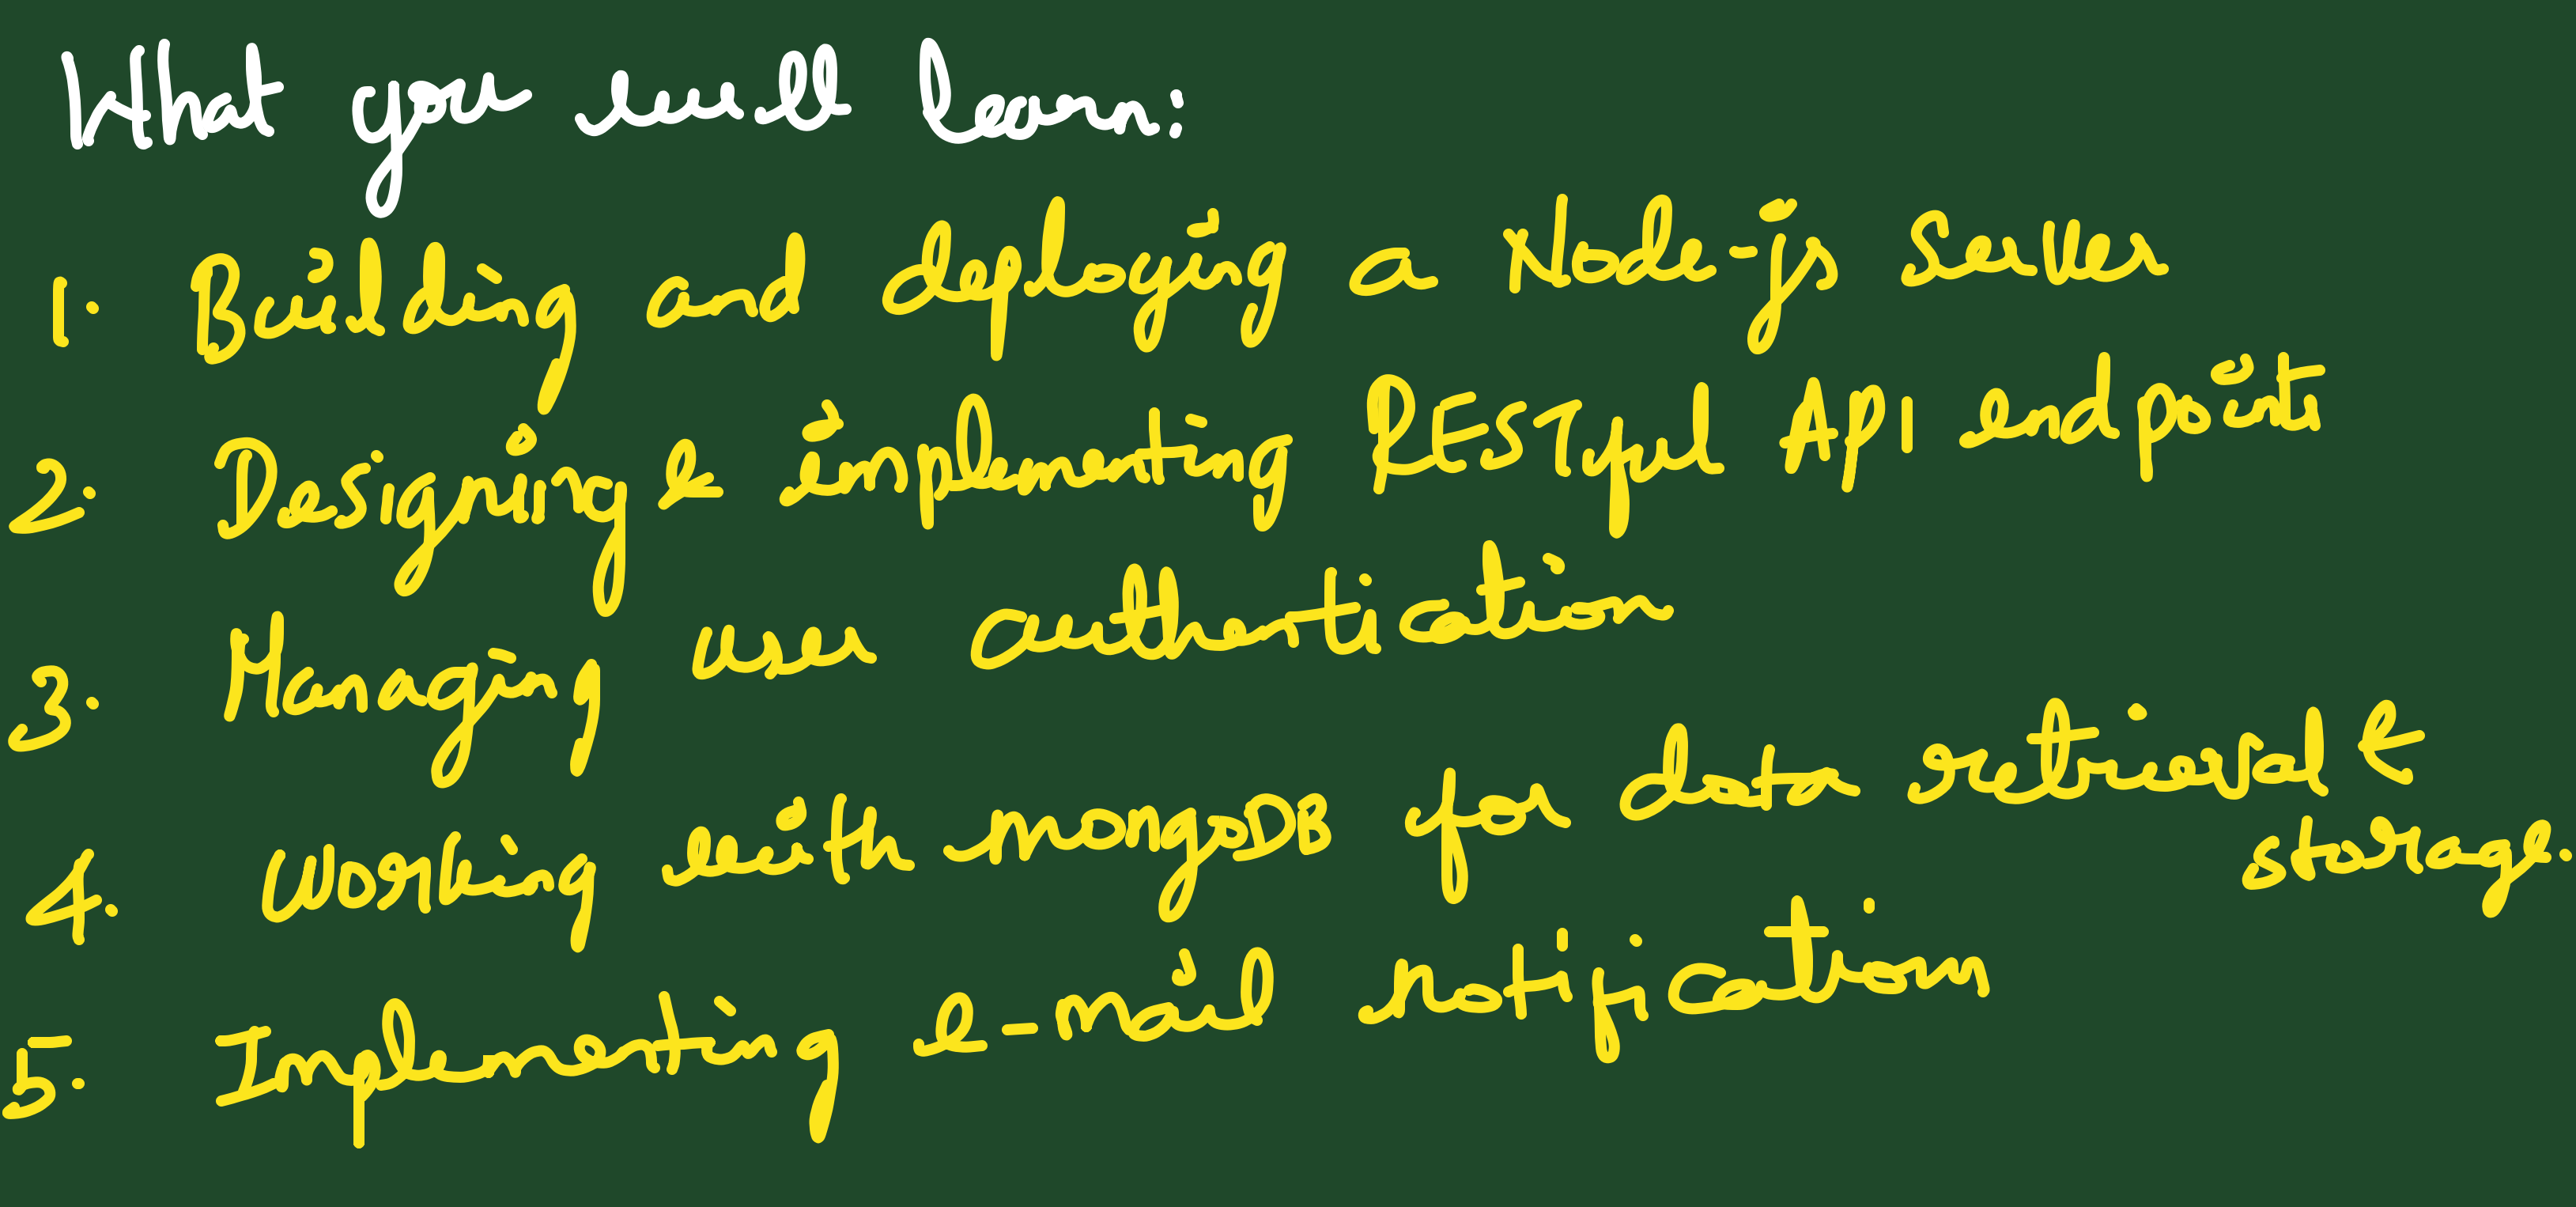 What you will learn:
1. Building and deploying a Node-js server
2. Designing & implementing RESTful API endpoints
3. Managing user authentication
4. Working with mongoDB for data retrieval &
storage.
5. Implementing e-mail notification